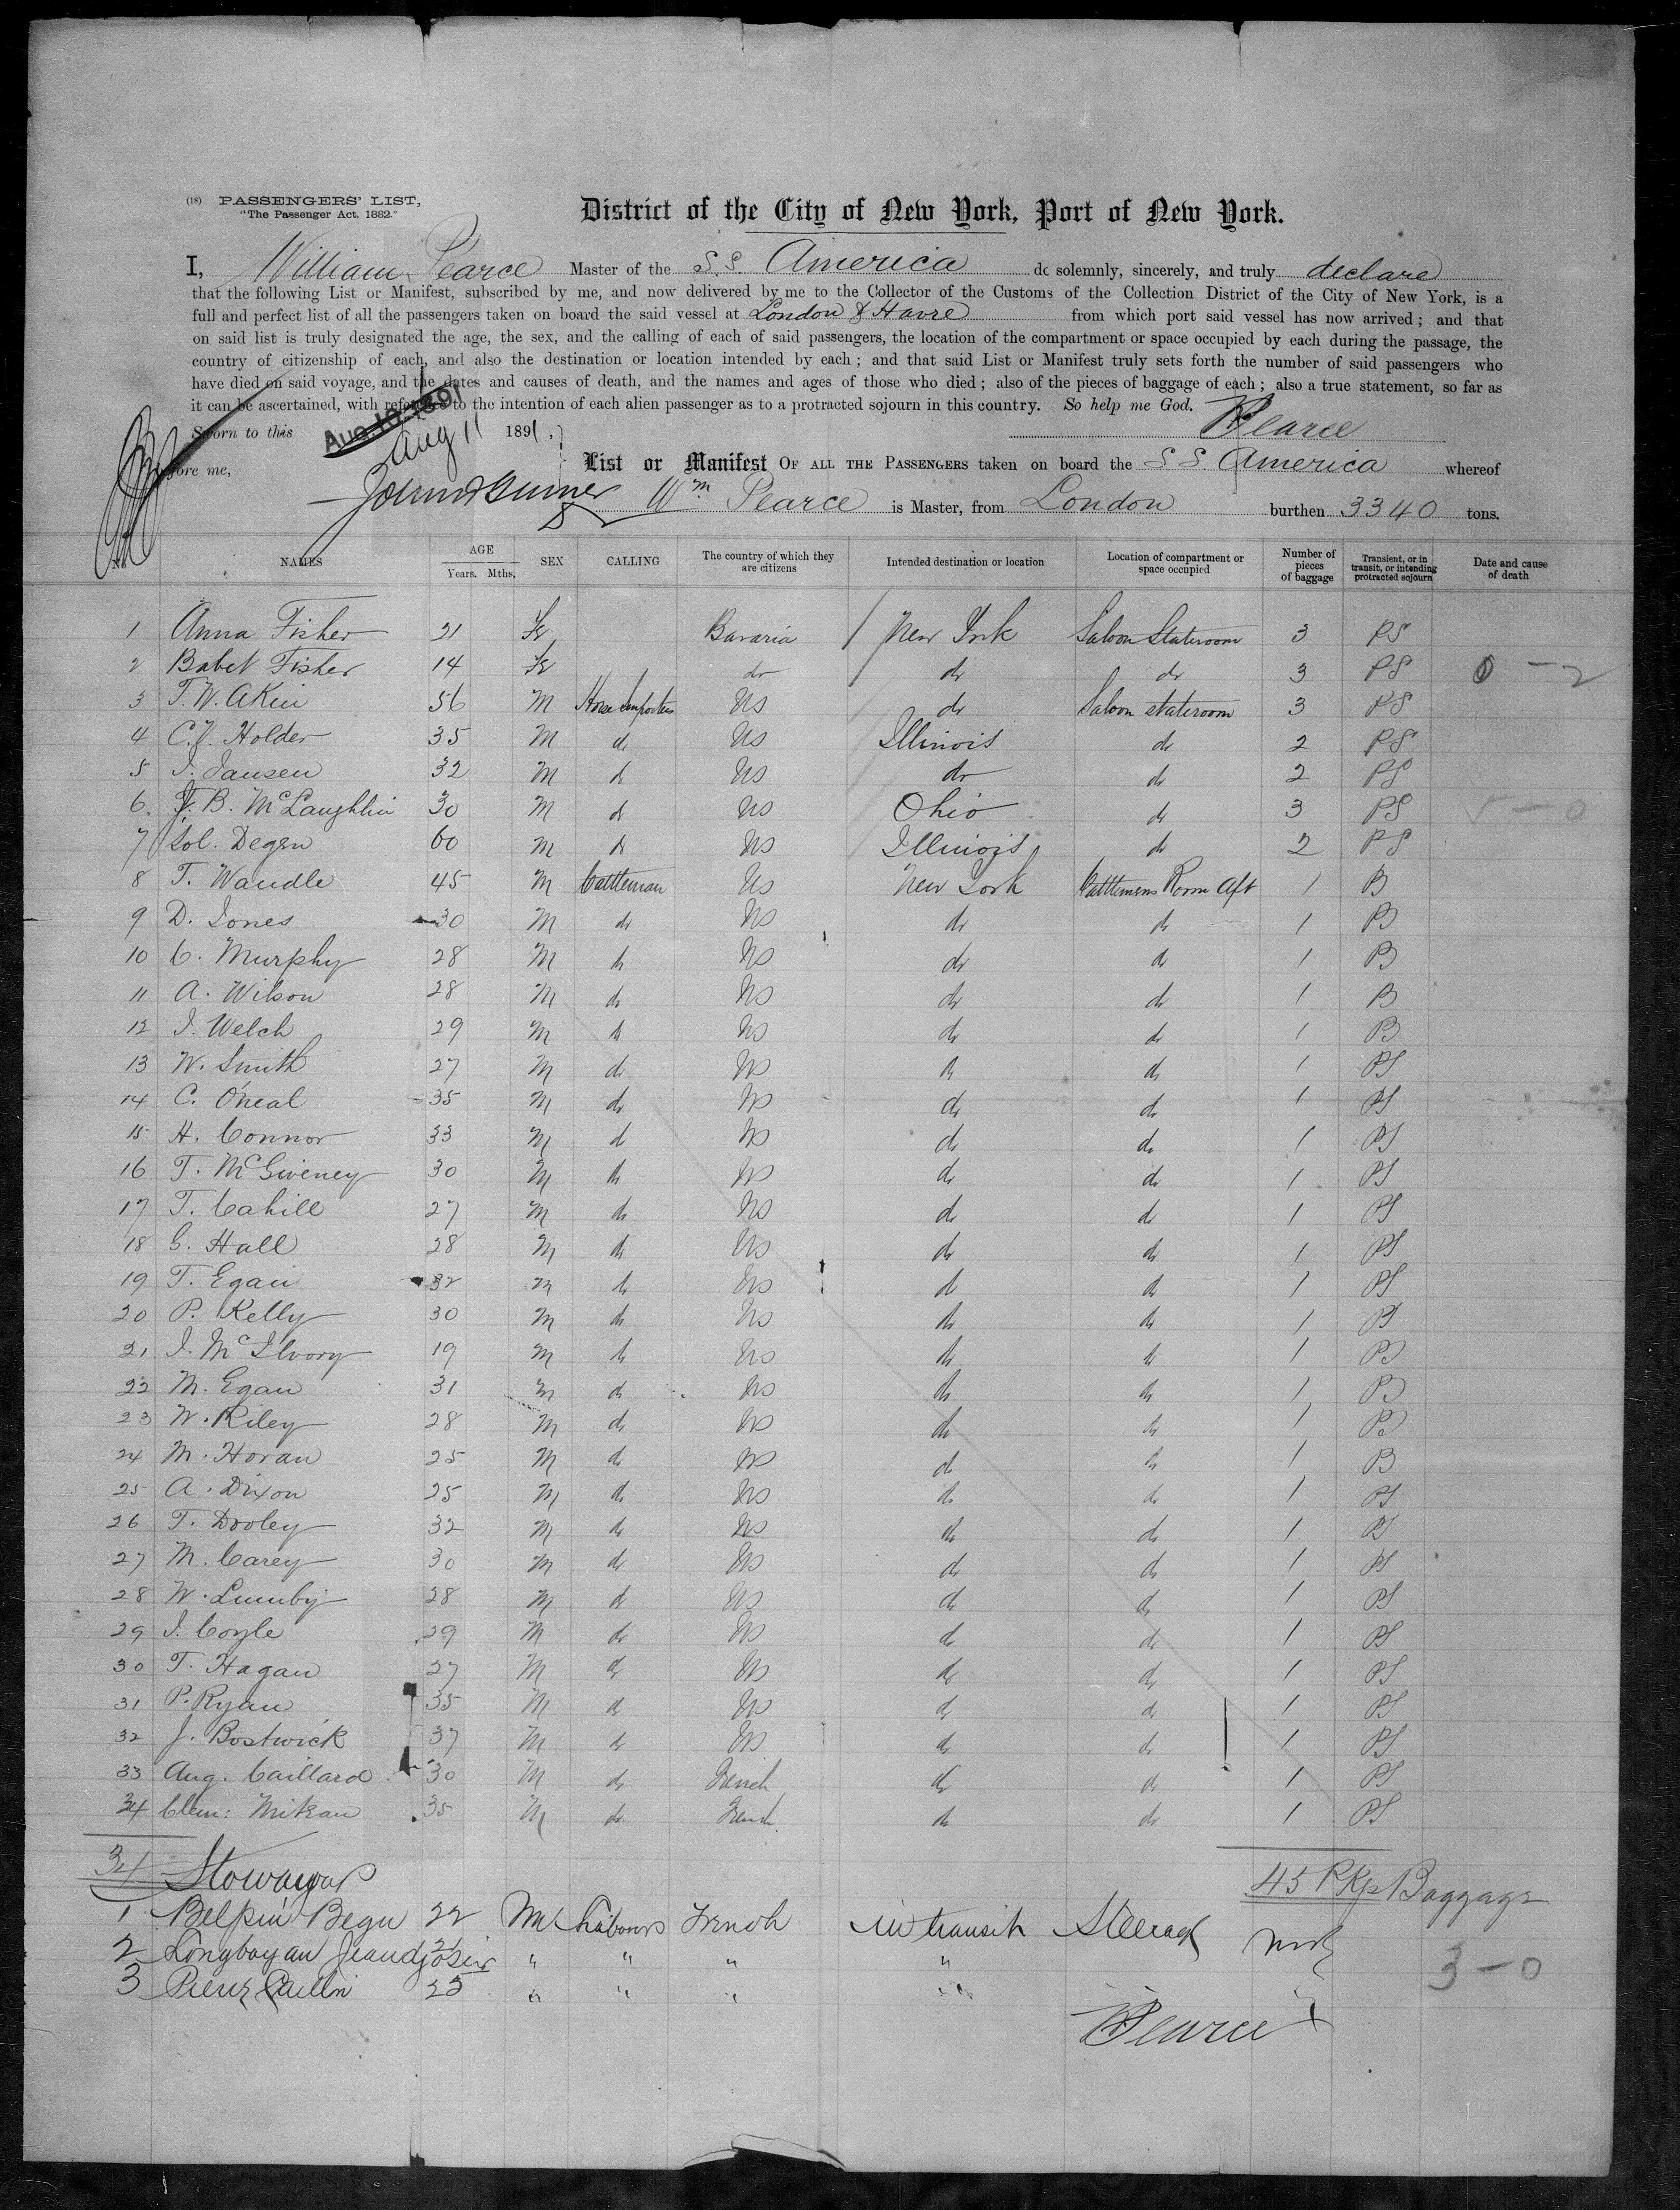 (18) PASSENGERS' LIST,
"The Passenger Act, 1882."
District of the City of New York, Port of New York.
I, William Pearce Master of the S.S. America do solemnly, sincerely, and truly declare
that the following List or Manifest, subscribed by me, and now delivered by me to the Collector of the Customs of the Collection District of the City of New York, is a
full and perfect list of all the passengers taken on board the said vessel at London & Havre from which port said vessel has now arrived; and that
on said list is truly designated the age, the sex, and the calling of each of said passengers, the location of the compartment or space occupied by each during the passage, the
country of citizenship of each, and also the destination or location intended by each; and that said List or Manifest truly sets forth the number of said passengers who
have died on said voyage, and the dates and causes of death, and the names and ages of those who died; also of the pieces of baggage of each; also a true statement, so far as
it can be ascertained, with reference to the intention of each alien passenger as to a protracted sojourn in this country. So help me God.
WPearce
Sworn to this Aug 11 1891,
before me,
List or Manifest OF ALL THE PASSENGERS taken on board the S S America whereof
Wm Pearce is Master, from London burthen 3340 tons.
No NAMES AGE Years. Mths. SEX CALLING The country of which they are citizens Intended destination or location Location of compartment or space occupied Number of pieces of baggage Transient, or in transit, or intending protracted sojourn Date and cause of death
1 Anna Fisher 21 Fe Bavaria New York Saloon Stateroom 3 PS
2 Babet Fisher 14 Fe do do do 3 PS 0 - 2
3 T. W. Akin 56 M Horse Importer US do Saloon stateroom 3 PS
4 C. J. Holder 35 M do US Illinois do 2 PS
5 J. Jansen 32 M do US do do 2 PS
6 J. B. McLaughlin 30 M do US Ohio do 3 PS 5 - 0
7 Sol. Degen 60 M do US Illinois do 2 PS
8 T. Wandle 45 M Cattleman US New York Cattlemens Room Aft 1 PS
9 D. Jones 30 M do US do do 1 PS
10 C. Murphy 28 M do US do do 1 PS
11 A. Wilson 28 M do US do do 1 PS
12 J. Welch 29 M do US do do 1 PS
13 W. Smith 27 M do US do do 1 PS
14 C. O'neal 35 M do US do do 1 PS
15 H. Connor 33 M do US do do 1 PS
16 T. McGiveney 30 M do US do do 1 PS
17 T. Cahill 27 M do US do do 1 PS
18 G. Hall 28 M do US do do 1 PS
19 T. Egan 32 M do US do do 1 PS
20 P. Kelly 30 M do US do do 1 PS
21 J. McIlvory 19 M do US do do 1 PS
22 M. Egan 31 M do US do do 1 PS
23 W. Riley 28 M do US do do 1 PS
24 M. Horan 25 M do US do do 1 PS
25 A. Dixon 25 M do US do do 1 PS
26 T. Dooley 32 M do US do do 1 PS
27 M. Carey 30 M do US do do 1 PS
28 W. Lumby 28 M do US do do 1 PS
29 J. Coyle 29 M do US do do 1 PS
30 T. Hagan 27 M do US do do 1 PS
31 P. Ryan 35 M do US do do 1 PS
32 J. Bostwick 37 M do US do do 1 PS
33 Aug. Caillard 30 M do French do do 1 PS
34 Clem: Mikan 35 M do French do do 1 PS
34 Stoways 45 PKgs Baggage
1 Belpin Begu 22 M Labourer French in transit Steerage
2 " " " "
3 25 " " " " 3 - 0
WPearce